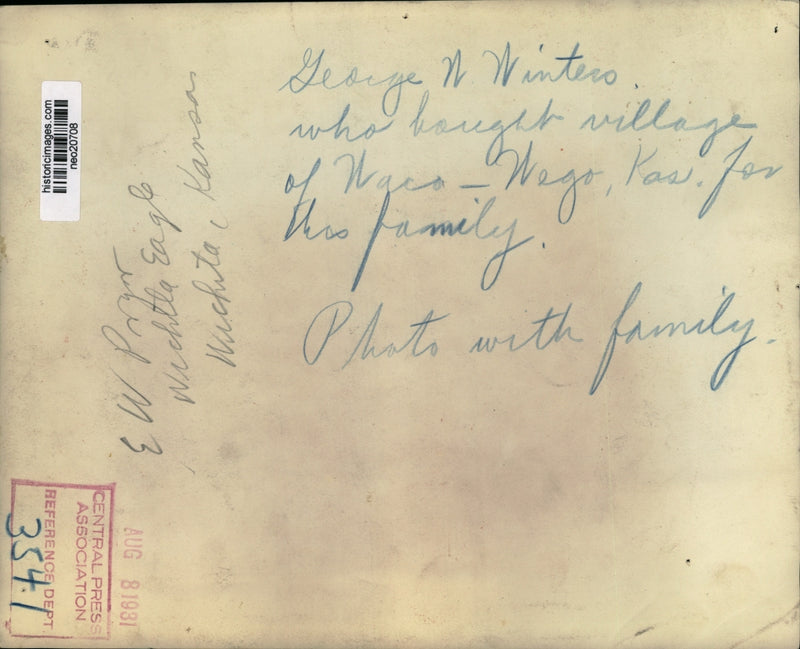 George W Winters
who bought village
of Waco - Wego, Kas. for
his family.
Photo with family.
E W
Wichita Eagle
Wichita, Kansas
historicimages.com
neo20708
CENTRAL PRESS
ASSOCIATION
REFERENCE DEPT.
3541
AUG 8 1931